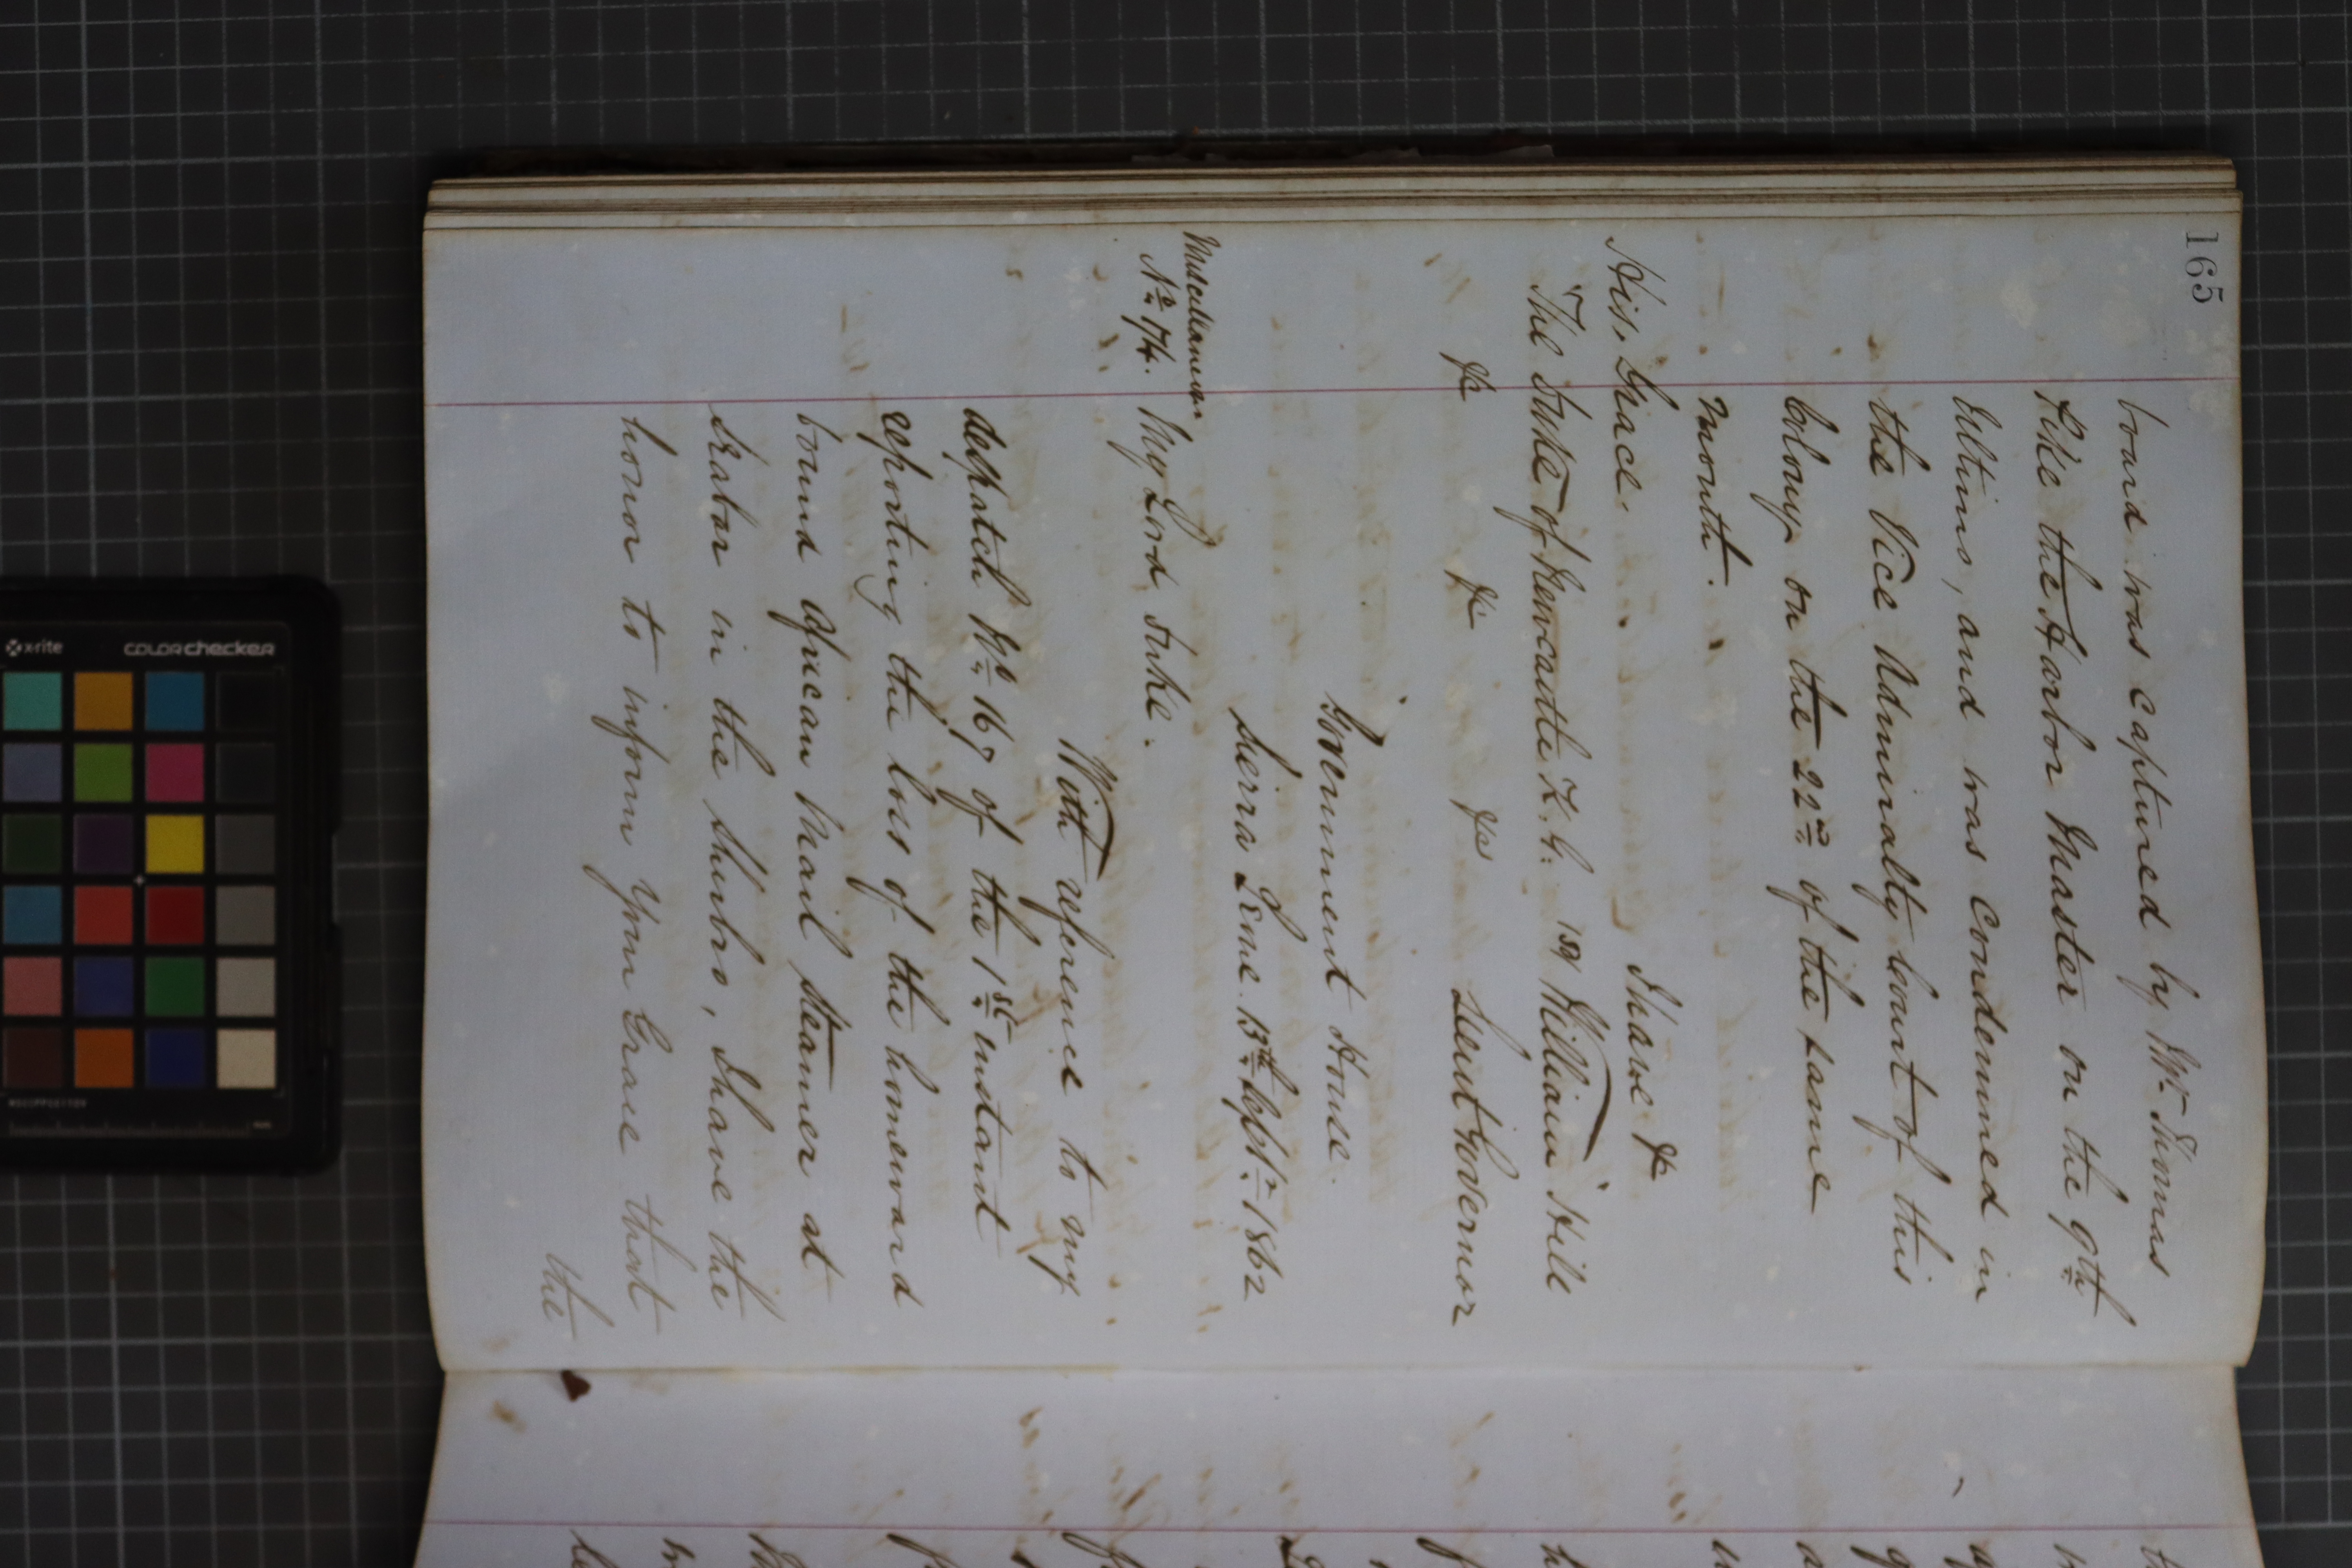 165
bound was captured by Mr. Thomas
Pike the Harbor Master on the 9th
Ultimo, and was Condemned in
the Vice Admiralty Court of this
Colony on the 22nd of the same
month.
I have &c
His, Grace.
The Duke of Newcastle K. G. (Sd) William Hill
&c &c &c Lieut Governor
Government House.
Sierra Leone. 13th Septr. 1862
Miscellaneous
No. 174. My Lord Duke.
With reference to my
despatch No. 167 of the 1st instant
reporting the loss of the homeward
bound African Mail Steamer at
in the Sherbro, I have the
honor to inform Your Grace that
the
x-rite colorchecker